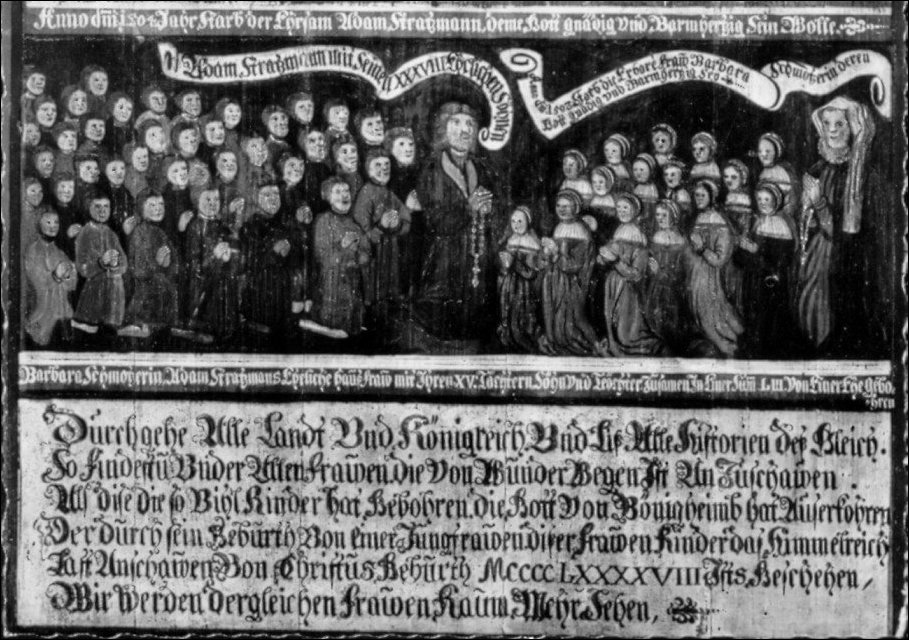 Anno dm̄i 1504 Jahr, starb der Ehrsam Adam Stratzmann, deme Gott gnädig vnd Barmhertzig Sein Wolle.
Adam Stratzmann mit Seinen XXXVIII Ehelichen Söhnen
starb die Erbare fraw Barbara Schmotzerin deren
Gott gnädig vnd Barmhertzig Sey
Barbara Schmotzerin, Adam Stratzmans Ehrliche haus fraw mit Ihren XV. Töchtern, Söhn vnd Töchter Zusamen In Einer Sum LIII Von Einer Ehe gebo,
hren
Durchgehe Alle Landt Vnd Königreich, Vnd Lis Alle historien der Gleich.
So findestu Vnder Allen frawen, die Von Wunder Wegen Ist An Zuschawen.
Als dise die so Vihl Kinder hat Gebohren, die Gott Von Bönigheimb hat Auserkohren
Der durch sein Geburth Von einer Jungfrawen diser frawen Kinder das himmelreich
Last Anschawen, Von Christus Geburth MCCCCLXXXXVIII Ists Geschehen,
Wir Werden dergleichen frawen Kaum Mehr Sehen,